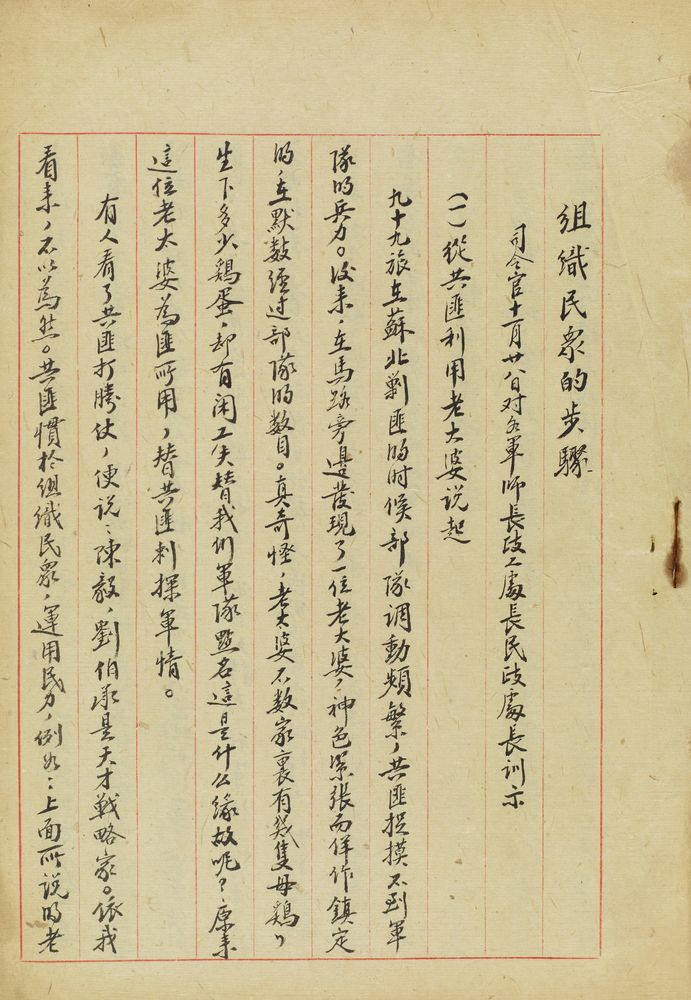 組織民衆的步驟
司令官十一月廿八日对各軍師長政工處長民政處長訓示
(一)從共匪利用老大婆说起
九十九旅在蘇北剿匪的时候部隊調動頻繁，共匪捉摸不到軍
隊的兵力。後来，在馬路旁邊發現了一位老大婆，神色緊張而佯作鎮定
的，在默数經过部隊的数目。真奇怪，老太婆不数家裏有幾隻母鷄，
生下多少鷄蛋，却有闲工夫替我们軍隊點名這是什么緣故呢？原来
這位老太婆為匪所用，替共匪刺探軍情。
有人看了共匪打勝仗，便说：陳毅，劉伯承是天才戰略家。依我
看来，不以為然。共匪慣於組織民衆，運用民力，例如：上面所说的老